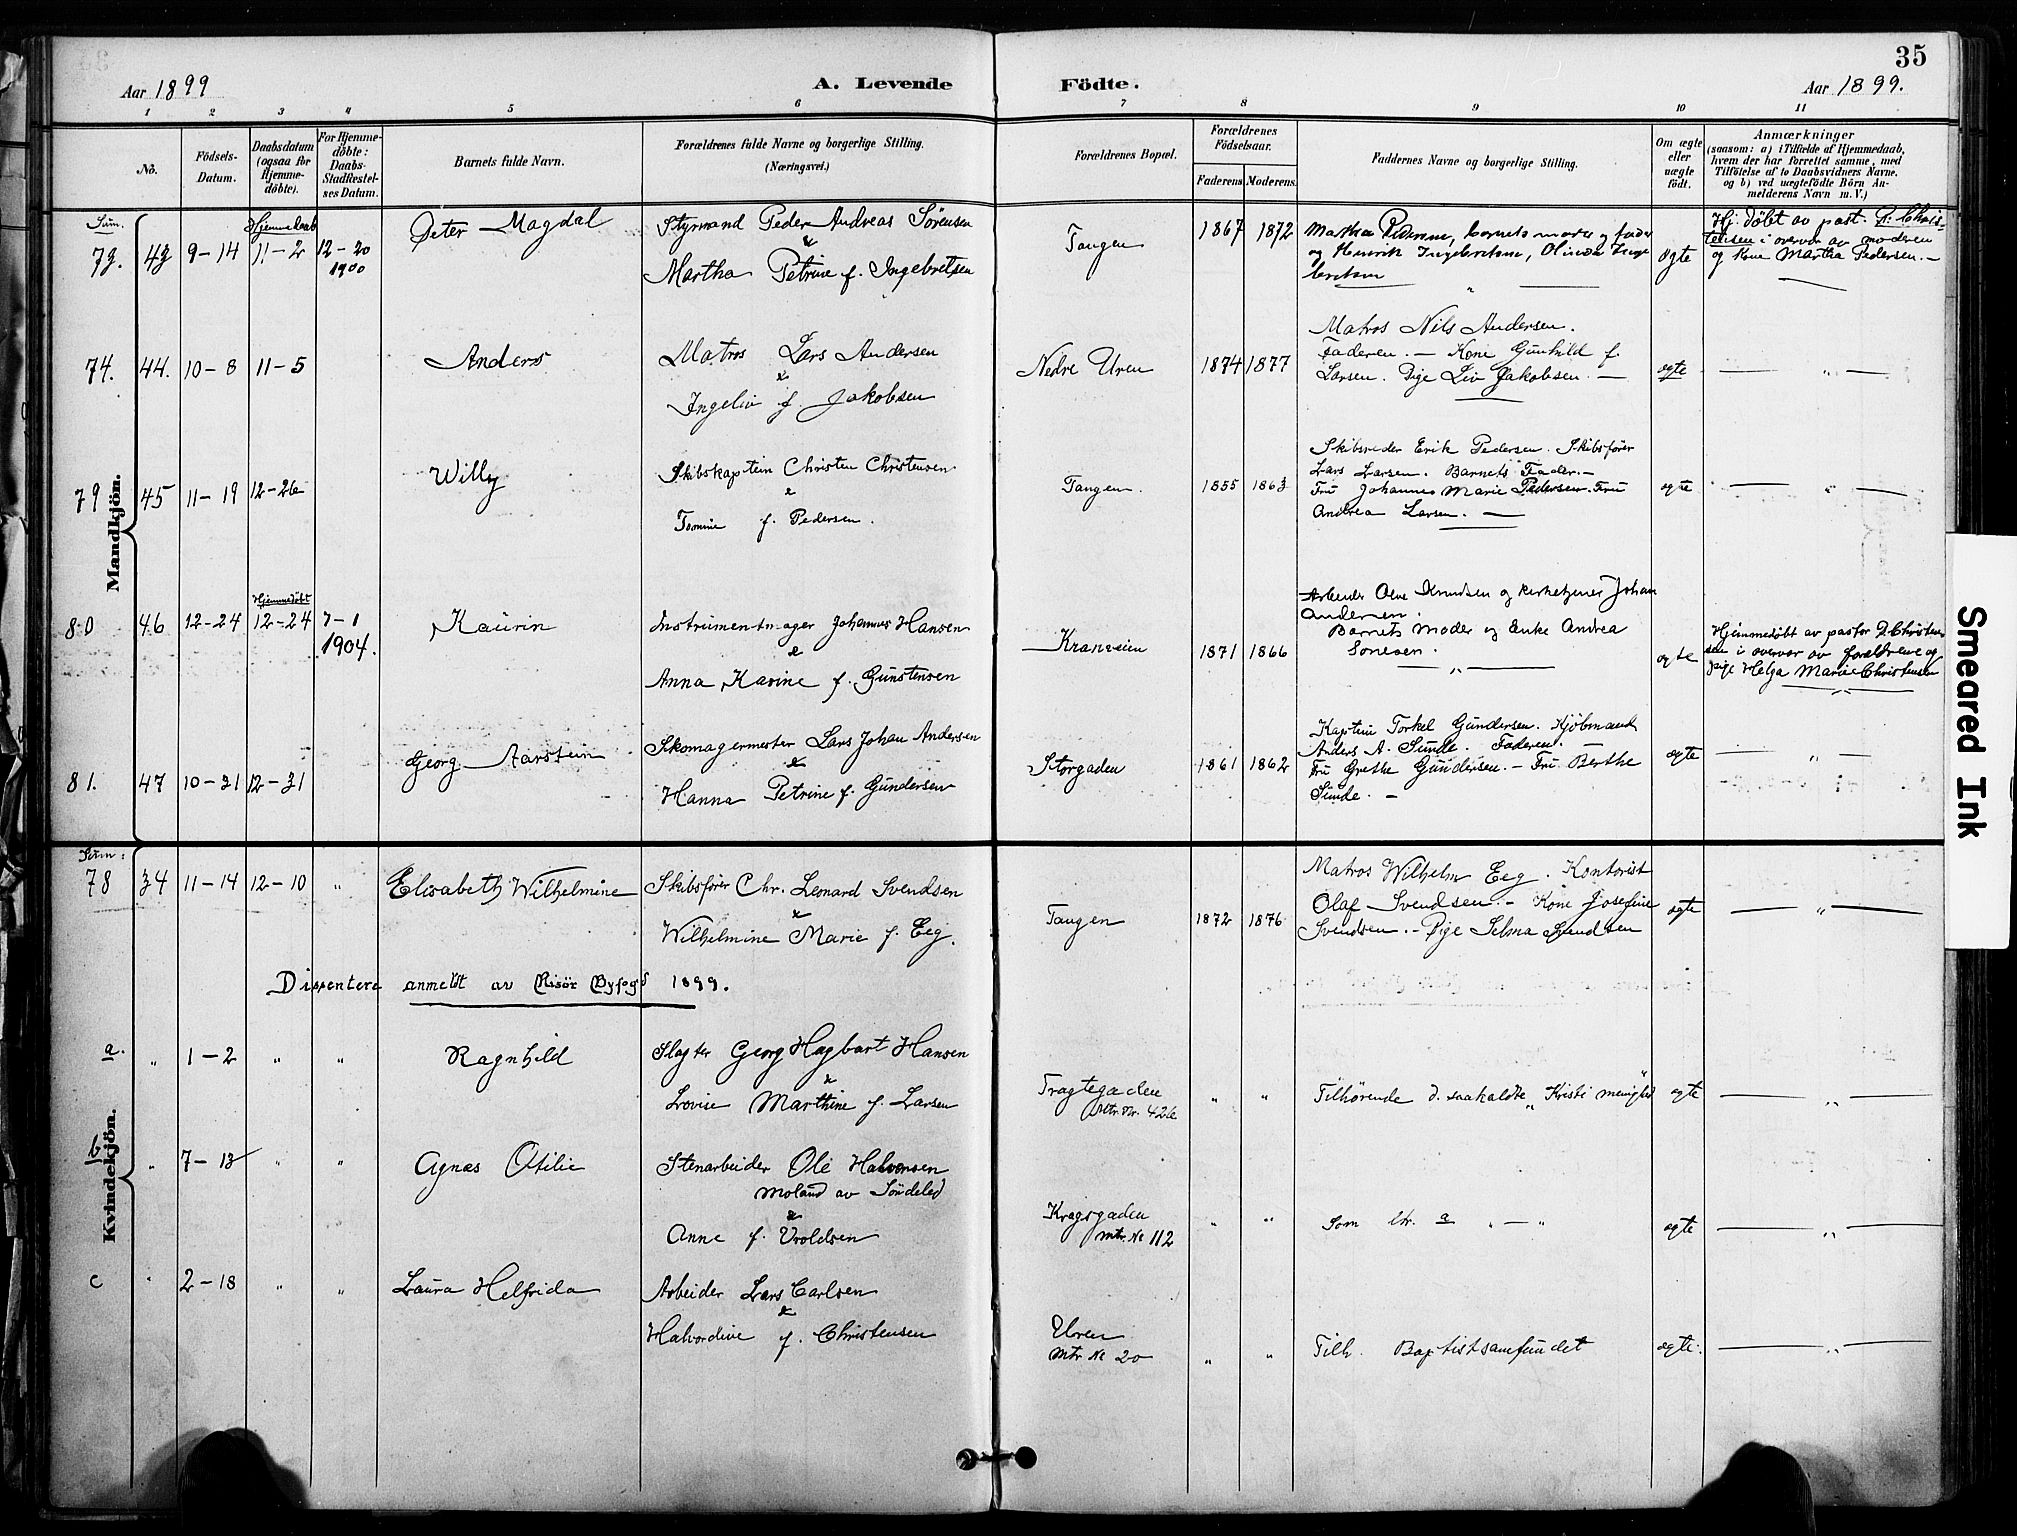 35
Aar 1899
A. Levende
Födte.
Aar 1899.
1 2 3 4 5 6 7 8 9 10 11
No.
Födsels-
Datum.
Daabsdatum
(ogsaa for
Hjemme-
döbte).
For Hjemme-
döbte:
Daabs-
Stadfæstel-
ses Datum.
Barnets fulde Navn.
Forældrenes fulde Navne og borgerlige Stilling.
(Næringsvei.)
Forældrenes Bopæl.
Forældrenes
Födselsaar.
Faderens
Moderens.
Faddernes Navne og borgerlige Stilling.
Om ægte
eller
uægte
födt.
Anmærkninger
(saasom: a) i Tilfælde af Hjemmedaab,
hvem der har forrettet samme, med
Tilföielse af to Daabsvidners Navne,
og b) ved uægtefödte Börn An-
melderens Navn m. V.)
Mandkjön.
Sum.
73. 43 9-14
Hjemmedaab
11-2
12-20
1900
Peter Magdal
Styrmand Peder Andreas Sörensen
&
Martha Petrine f. Ingebretsen
Tangen
1867 1872
Martha Pedersen, barnets moder og fader
og Henrik Ingebretsen, Olinda Inge
bretsen
ægte
Hj. döbt av past. D. Chris-
tensen i overvær av moderen
og Kone Martha Pedersen. —
74. 44. 10-8 11-5
Anders
Matros Lars Andersen
&
Ingeliv f. Jakobsen
Nedre Uren
1874 1877
Matros Nils Andersen.
Faderen. — Kone Gunhild f.
Larsen. Pige Liv Jakobsen. —
ægte
— „ —
79 45 11-19 12-26
Willy
Skibskaptein Christen Christensen
&
Tomine f. Pedersen.
Tangen.
1855 1863
Skibsreder Erik Pedersen. Skibsfører
Lars Larsen. Barnets Fader. —
Fru Johanne Marie Pedersen. Fru
Andrea Larsen. —
ægte
— „ —
80 46 12-24
Hjemmedøbt
12-24
7-1
1904.
Kaurin
Instrumentmager Johannes Hansen
&
Anna Karine f. Gunstensen
Kranveien
1871 1866
Arbeider Olve Knudsen og kirketjener Johan
Andersen.
Barnets Moder og Enke Andrea
ægte
Hjemmedøbt av pastor D. Christen
sen i overvær av forældrene og
pige Helga Marie Christensen
81. 47 10-31 12-31
Georg Aarstein
Skomagermester Lars Johan Andersen
&
Hanna Petrine f. Gundersen
Storgaden
1861 1862
Kaptein Torkel Gundersen. Kjøbmand
Anders A. Sunde. Faderen.
Fru Grethe Gundersen. — Fru Berthe
Sunde. —
ægte
— „ —
Kvindekjön.
Sum:
78 34 11-14 12-10 „
Elisabeth Wilhelmine
Skibsfører Chr. Leonard Svendsen
&
Wilhelmine Marie f. Eeg.
Tangen
1872 1876
Matros Wilhelm Eeg. Kontorist
Olaf Svendsen. — Kone Josefine
Svendsen. — Pige Selma Svendsen
ægte
— „ —
Dissentere anmeldt av Risör Byfogd 1899.
a. „ 1-2 „ „
Ragnhild
Slagter Georg Hagbart Hansen
&
Lovise Marthine f. Larsen
Tragtegaden
Mtr. Nr. 426
„ „
Tilhørende d. saakaldte „Kristi menighed"
ægte
— „ —
b „ 7-13 „ „
Agnes Otilie
Stenarbeider Ole Halvorsen
Moland av Söndeled
&
Anne f. Vroldsen
Kragsgaden
mtr. № 112
„ „
Som Nr. a „ — „
ægte
— „ —
c „ 2-18 „ „
Laura Helfrida
Arbeider Lars Carlsen
&
Halvordine f. Christensen
Uren
Mtr № 20
„ „
Tilh. Baptistsamfundet
ægte.
— „ —
Smeared Ink